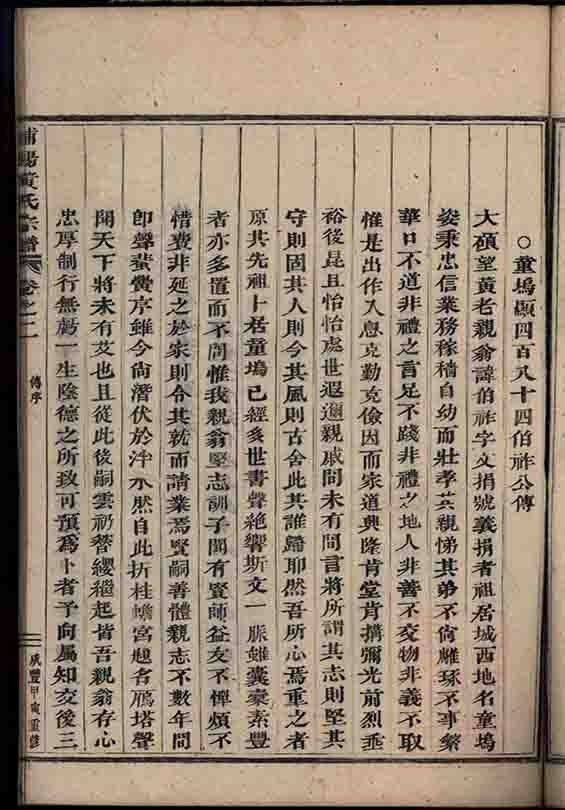 ○童塢顯四百八十四伯祚公傳
大碩望黃老親翁諱伯祚字文捐號義捐者祖居城西地名童塢
姿秉忠信業務稼穡自幼而壯孝其親悌其弟不尚雕琢不事繁
華口不道非禮之言足不踐非禮之地人非善不交物非義不取
惟是出作入息克勤克儉因而家道興隆肯堂肯搆彌光前烈垂
裕後昆且怡怡處世遐邇親戚間未有間言將所謂其志則堅其
守則固其人則今其風則古舍此其誰歸耶然吾所心焉重之者
原其先祖卜居童塢已經多世書聲絕響斯文一脈雖囊橐素豐
者亦多置而不問惟我親翁堅志訓子聞有賢師益友不憚煩不
惜費非延之於家則令其就而請業焉賢嗣善體親志不數年間
即聲蜚黌序雖今尚潛伏於泮水然自此折桂蟾宮題名雁塔聲
聞天下將未有艾也且從此後嗣雲礽簪纓繼起皆吾親翁存心
忠厚制行無虧一生陰德之所致可預為卜者予向屬知交後三
浦陽黃氏宗譜 卷之二 傳序 咸豐甲寅重修